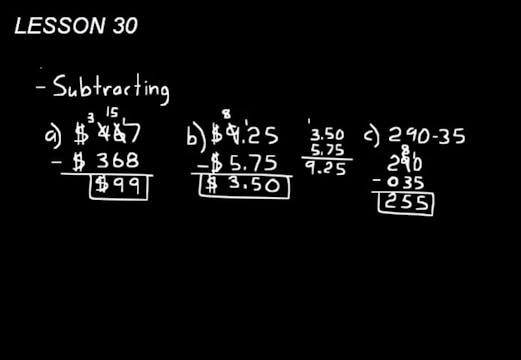 LESSON 30
- Subtracting
3 15 1
a) $ 467
- $ 368
$ 99
8 1
b) $ 9.25
- $ 5.75
$ 3.50
1
3.50
5.75
9.25
c) 290-35
8 1
290
- 035
255